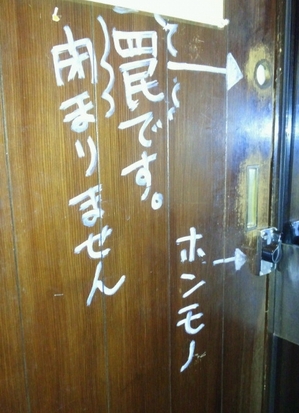 罠です。
閉まりません
→
ホンモノ→